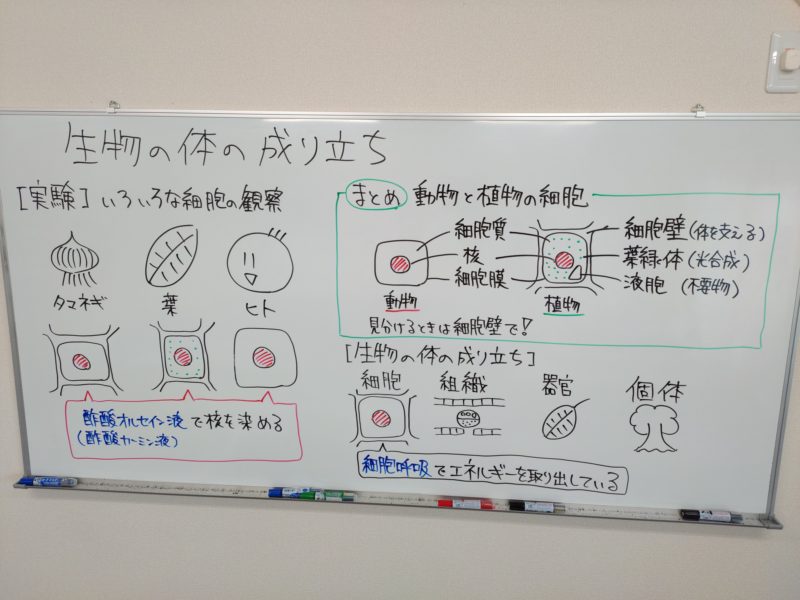 生物の体の成り立ち
[実験] いろいろな細胞の観察
タマネギ
葉
ヒト
酢酸オルセイン液で核を染める
(酢酸カーミン液)
まとめ 動物と植物の細胞
細胞質
核
細胞膜
細胞壁(体を支える)
葉緑体(光合成)
液胞(不要物)
動物
植物
見分けるときは細胞壁で!
[生物の体の成り立ち]
細胞 組織 器官 個体
細胞呼吸でエネルギーを取り出している